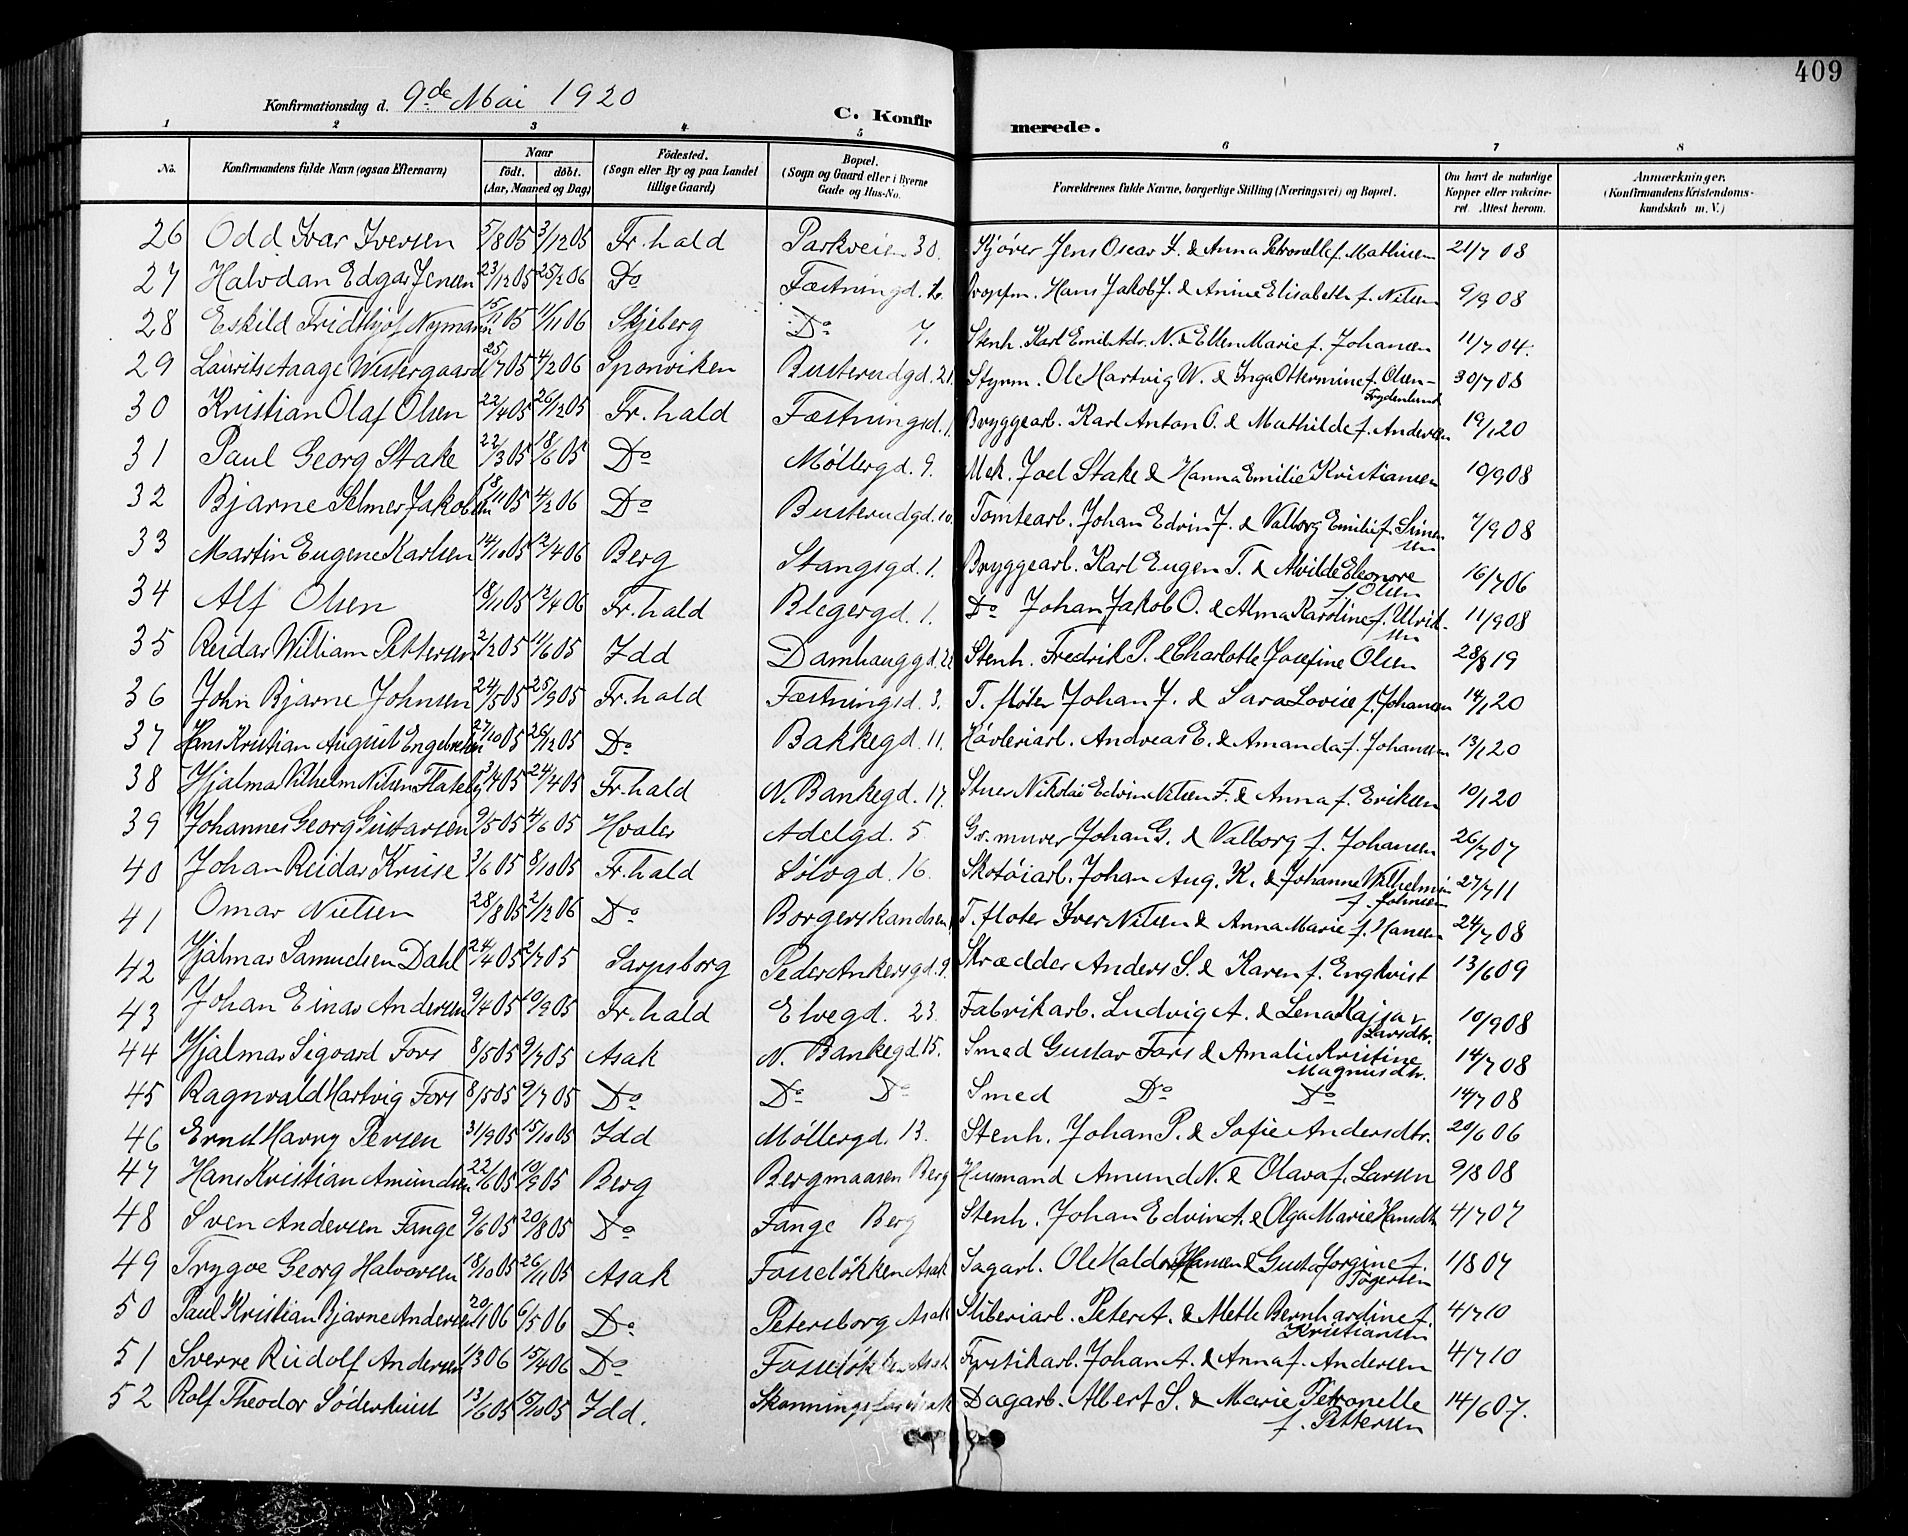 409
Konfirmationsdag d. 9de Mai 1920
C. Konfirmerede.
1 2 3 4 5 6 7 8
No. Konfirmandens fulde Navn (ogsaa Efternavn) Naar født. døbt. (Aar, Maaned og Dag) Fødested. (Sogn eller By og paa Landet tillige Gaard) Bopæl. (Sogn og Gaard eller i Byerne Gade og Hus-No. Forældrenes fulde Navne, borgerlige Stilling (Næringsvei) og Bopæl. Om havt de naturlige Kopper eller vaccineret. Attest herom. Anmærkninger. (Konfirmandens Kristendomskundskab m. V.)
26 Odd Ivar Iversen 5/8 05 3/12 05 Fr.hald Parkveien 30. Kjører Jens Oscar I. & Anna Petronelle f. Mathisen 21/7 08
27 Halvdan Edgar Jensen 23/12 05 25/2 06 Do Fæstningd. Hans Jakob J. & Anine Elisabeth f. Nilsen 9/9 08
28 Eskild Fridthjof Nyman 15/11 05 11/11 06 Skjeberg Do 7. Stenh. Karl Emil Adr. N. & Ellen Marie f. Johansen 11/7 04.
29 Laurits Aage Westergaard 25/7 05 4/2 06 Sponviken Busterudgd. 21. Styrm. Ole Hartvig W. & Inga Ottermine f. Olsen-Frydenlund 30/7 08
30 Kristian Olaf Olsen 22/4 05 26/12 05 Fr.hald Fæstningsd. 1. Bryggearb. Karl Anton O. & Mathilde f. Andersen 19/1 20
31 Paul Georg Stake 22/3 05 18/6 05 Do Møllergd. 9. Mek. Joel Stake & Hanna Emilie Kristiansen 10/9 08
32 Bjarne Selmer Jakobsen 18/11 05 4/2 06 Do Busterudgd. 10. Tomtearb. Johan Edvin J. & Valborg Emilie f. Simensen 7/9 08
33 Martin Eugene Karlsen 14/10 05 12/4 06 Berg Stangsgd. 1. Bryggearb. Karl Eugen T. & Alvilde Eleonore f. Olsen 16/7 06
34 Alf Olsen 18/11 05 12/4 06 Fr.hald Blegergd. 1. Do Johan Jakob O. & Alma Karoline f. Ulvidsen 11/9 08
35 Reidar William Pettersen 2/2 05 11/6 05 Idd Damhauggd. 22 Stenh. Fredrik P. & Charlotte Josefine Olsen 28/8 19
36 John Bjarne Johnsen 24/5 05 25/9 05 Fr.hald Fæstningsd. 3. T. fløter Johan J. & Sara Lovise f. Johansen 14/1 20
37 Hans Kristian August Engebretsen 27/10 05 26/12 05 Do Bakkegd. 11. Høvleriarb. Andreas E. & Amanda f. Johansen 13/1 20
38 Hjalmar Vilhelm Nilsen Flateby 3/4 05 24/4 05 Fr.hald N. Bankegd. 17. Stuer Nikolai Edvin Nilsen F. & Anna f. Eriksen 10/1 20
39 Johannes Georg Gustavsen 9/5 05 4/6 05 Hvaler Adelgd. 5. Gr. murer Johan G. & Valborg f. Johansen 26/7 07
40 Johan Reidar Kruse 3/6 05 8/10 05 Fr.hald Sølvgd. 16. Skotøiarb. Johan Aug. K. & Johanne Wilhelmine f. Johnsen 27/7 11
41 Omar Nielsen 28/8 05 2/12 06 Do Borgerskandsen T. fløter Iver Nilsen & Anna Marie f. Hansen 24/7 08
42 Hjalmar Samuelsen Dahl 24/4 05 2/7 05 Sarpsborg Peder Ankersgd. 9. Skrædder Anders S. & Karen f. Engkvist 13/6 09
43 Johan Einar Andersen 9/4 05 10/9 05 Fr.hald Elvegd. 23. Fabrikarb. Ludvig A. & Lena Kajsa Larsdtr. 10/9 08
44 Hjalmar Sigvard Fors 8/5 05 9/7 05 Asak N. Bankegd 15. Smed Gustav Fors & Amalie Kristine Magnusdtr. 14/7 08
45 Ragnvald Hartvig Fors 8/5 05 9/7 05 Do Do Do Smed Do Do 14/7 08
46 Ernd Harry Persen 31/9 05 15/10 05 Idd Møllergd. 13. Stenh. Johan P. & Sofie Andersdtr. 20/6 06
47 Hans Kristian Amundsen 22/6 05 10/9 05 Berg Bergmaasen Berg Husmand Amund N. & Olava f. Larsen 9/8 08
48 Sven Andersen Fange 9/6 05 20/8 05 Do Fange Berg Stenh. Johan Edvin A. & Olga Marie Hansdtr 4/7 07
49 Trygve Georg Halvorsen 18/10 05 26/11 05 Asak Fosseløkken Asak Sagarb. Ole Haldor Hansen & Gusta Jorgine f. Togersen 1/8 07
50 Paul Kristian Bjarne Andersen 20/1 06 6/5 06 Do Petersborg Asak Sliberiarb. Peter A. & Mette Bernhardine f. Kristiansen 4/7 10
51 Sverre Rudolf Andersen 1/3 06 15/4 06 Do Fosseløkken Asak Fyrstikarb. Johan A. & Anna f. Andersen 4/7 10
52 Rolf Theodor Søderlund 13/6 05 15/10 05 Idd. Asak Dagarb. Albert S. & Marie Petronelle f. Pettersen 14/6 07.